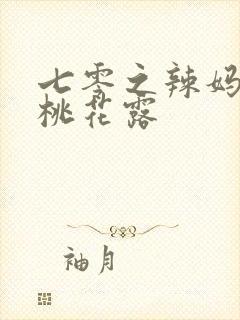 七零之辣妈
桃花露
袖月